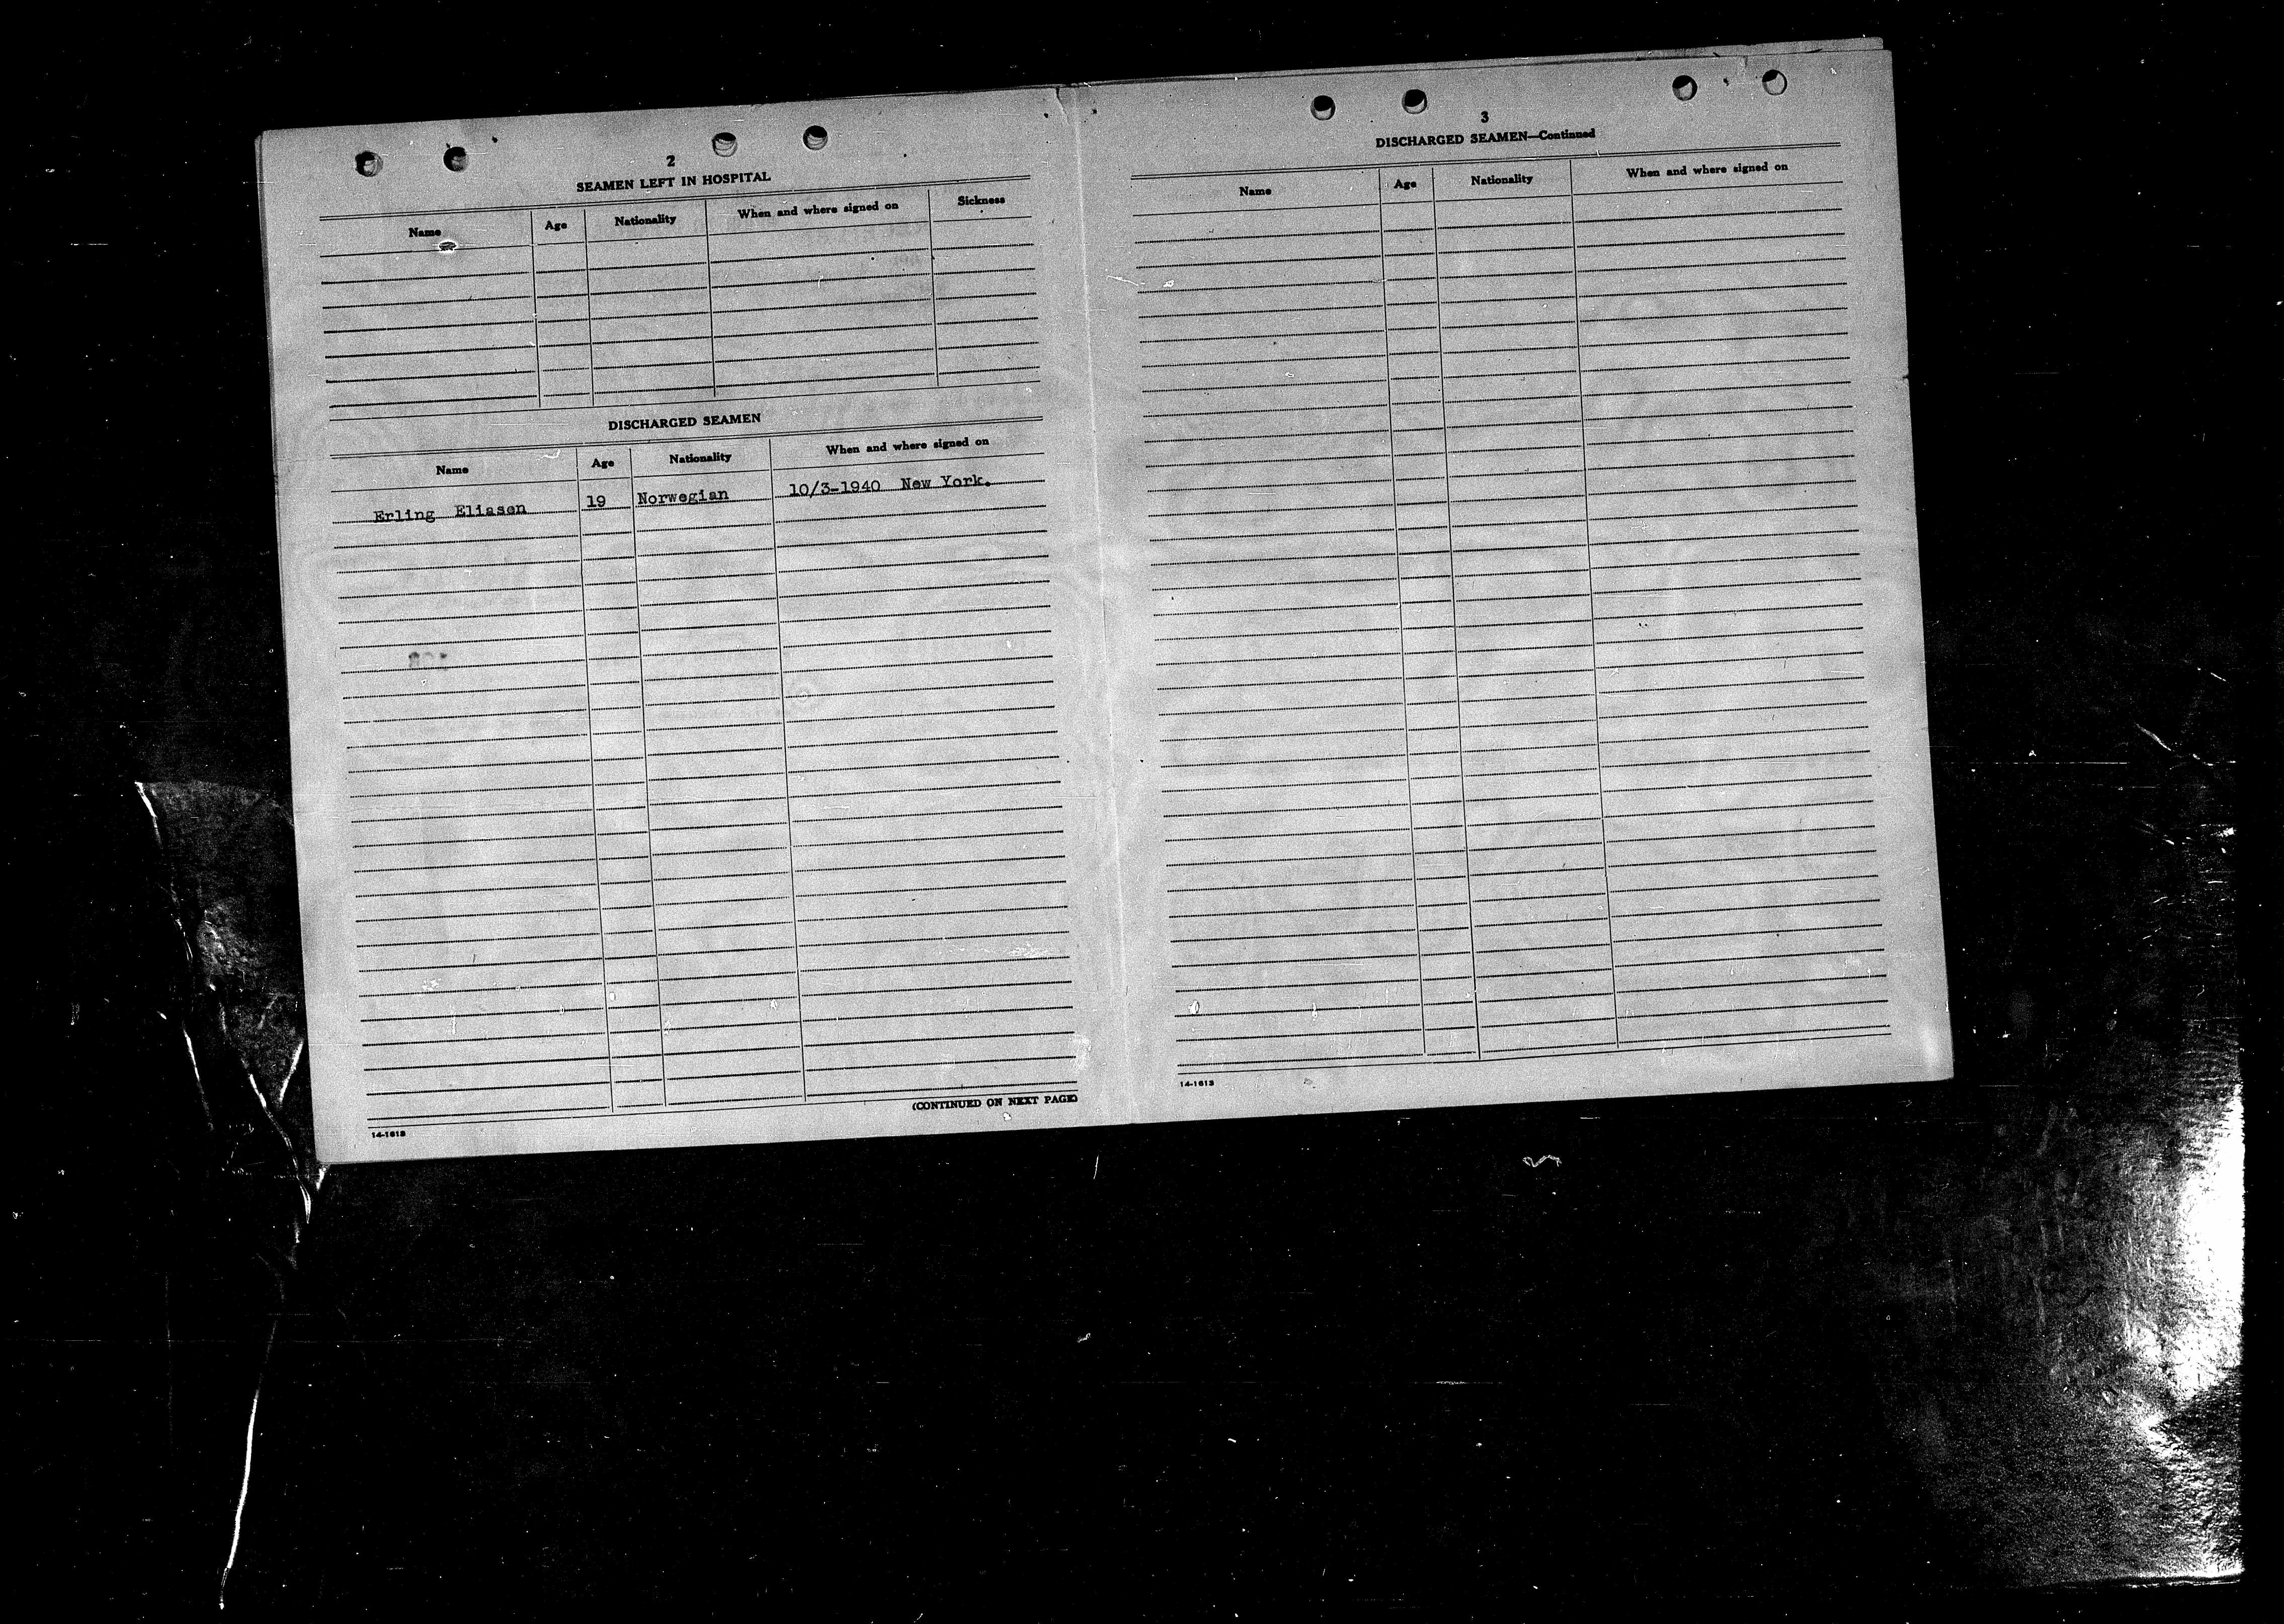 2
SEAMEN LEFT IN HOSPITAL
Name Age Nationality When and where signed on Sickness
DISCHARGED SEAMEN
Name Age Nationality When and where signed on
Erling Eliasen 19 Norwegian 10/3-1940 New York.
(CONTINUED ON NEXT PAGE)
14-1613
3
DISCHARGED SEAMEN—Continued
Name Age Nationality When and where signed on
14-1613